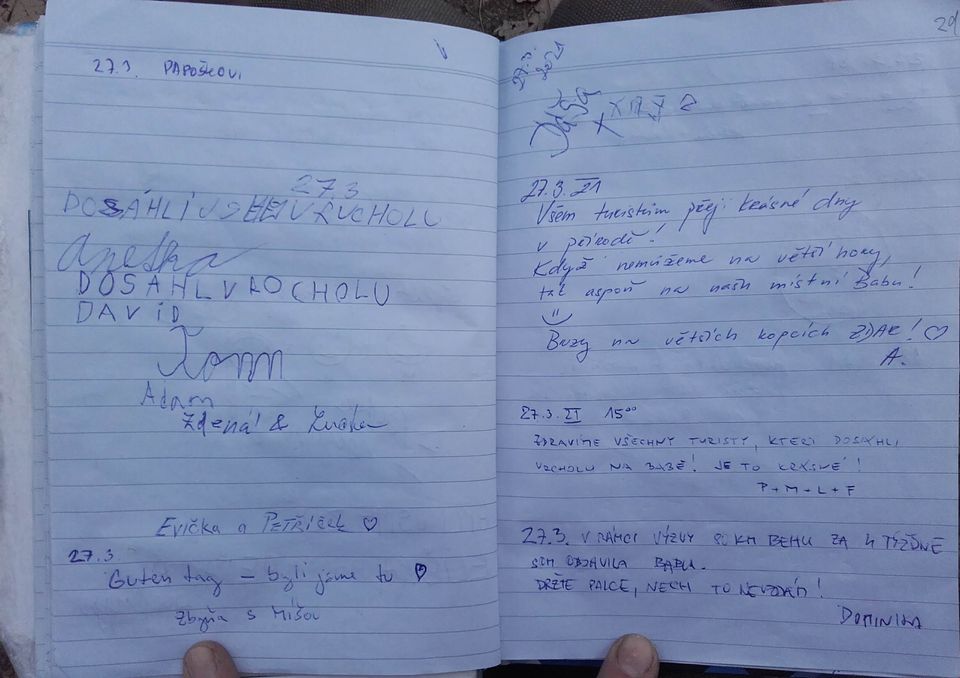 27.3. PAPOŠKOVI
27.3
DOSÁHLI VRCHOLU
Anežka
DOSÁHL VROCHOLU
DAVID
Tom
Adam
Zdena &
Evička a PETŘÍČEK ♡
27.3
Guten tag – byli jsme tu ♡
Zbyňa s Míšou
29
27.3.
2021
Dáša
27.3. 21
Všem turistům přeji krásné dny
v přírodě!
Když nemůžeme na větší hory,
tak aspoň na naši místní Babu!
Brzy na větších kopcích ZDAR! ♡
A.
27.3. 21 15⁰⁰
ZDRAVÍME VŠECHNY TURISTY, KTEŘÍ DOSÁHLI
VRCHOLU NA BABĚ! JE TO KRÁSNÉ!
P+M+L+F
27.3. V RÁMCI VÝZVY 80 KM BEHU ZA 4 TÝŽDNE
SEM OBJAVILA BABU.
DRŽTE PALCE, NECH TO NEVZDÁM!
DOMINIKA